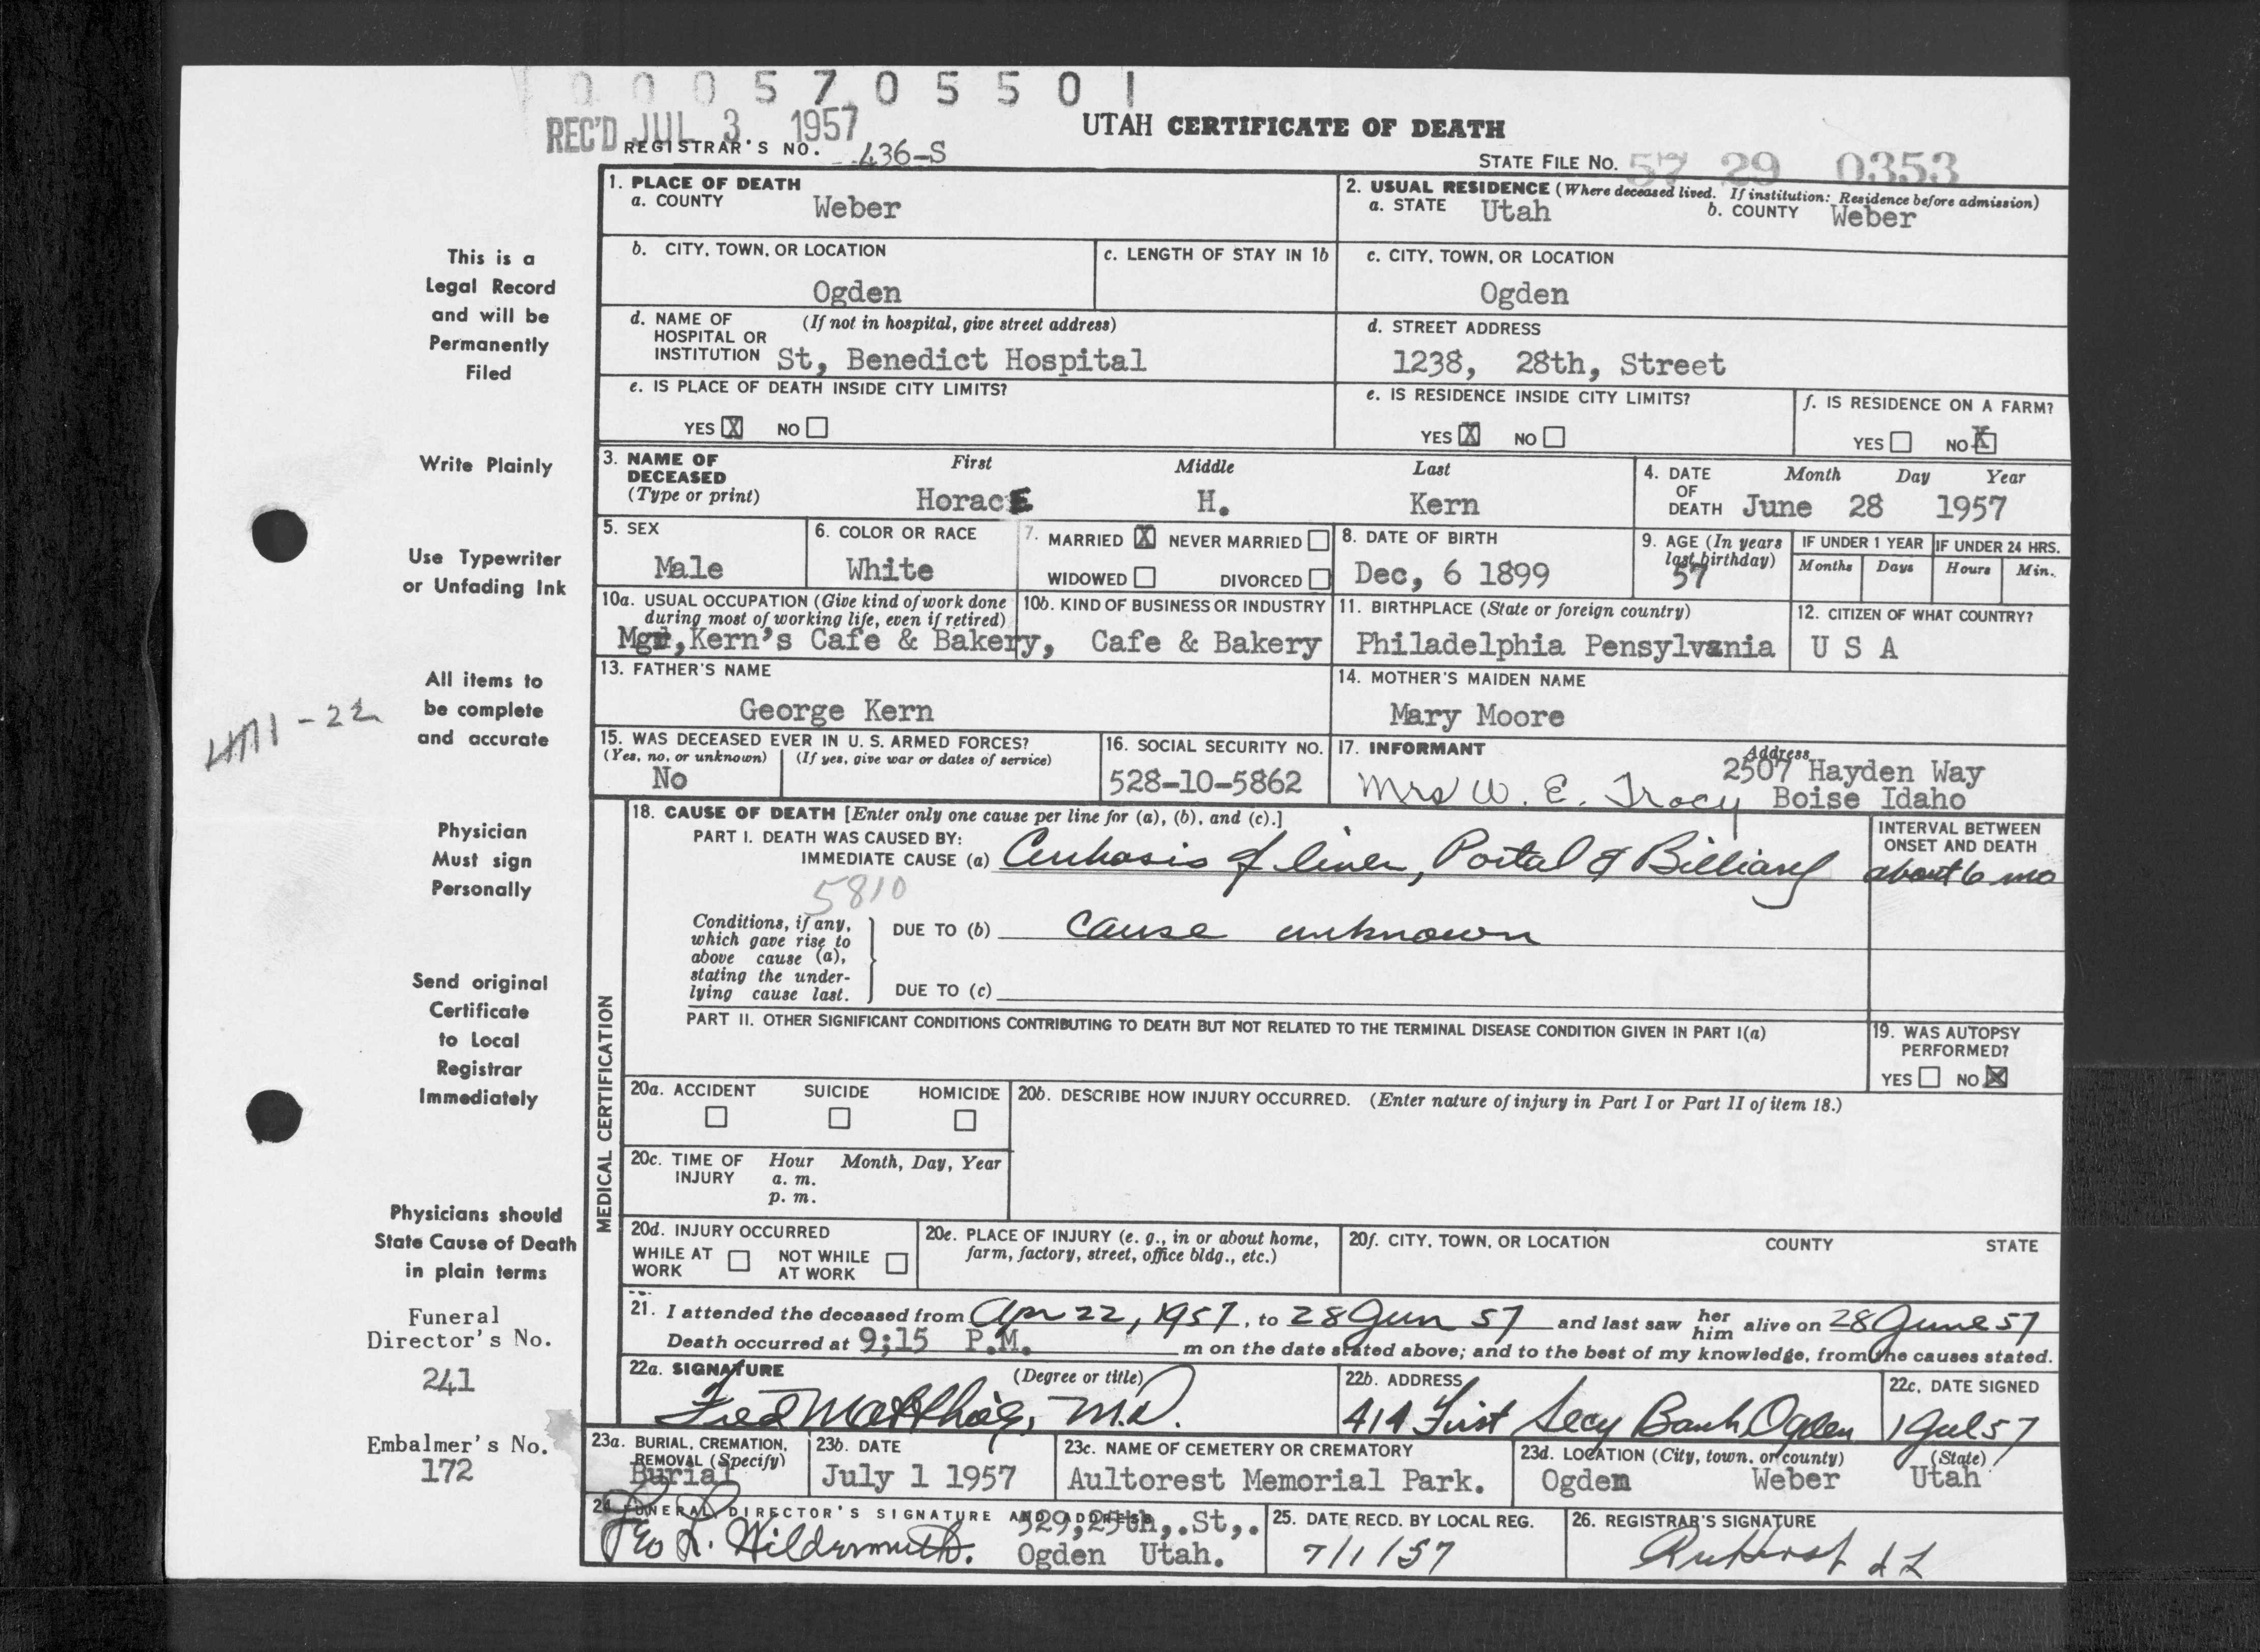 0 0 0 5 7 0 5 5 0 1
REC'D JUL 3 1957
UTAH CERTIFICATE OF DEATH
REGISTRAR'S NO. 436-S
STATE FILE NO. 57 29 0353
This is a
Legal Record
and will be
Permanently
Filed
Write Plainly
Use Typewriter
or Unfading Ink
All items to
be complete
and accurate
Physician
Must sign
Personally
Send original
Certificate
to Local
Registrar
Immediately
Physicians should
State Cause of Death
in plain terms
Funeral
Director's No.
241
Embalmer's No.
172
1. PLACE OF DEATH
a. COUNTY Weber
2. USUAL RESIDENCE (Where deceased lived. If institution: Residence before admission)
a. STATE Utah b. COUNTY Weber
b. CITY, TOWN, OR LOCATION
Ogden
c. LENGTH OF STAY IN 1b
c. CITY, TOWN, OR LOCATION
Ogden
d. NAME OF (If not in hospital, give street address)
HOSPITAL OR
INSTITUTION St, Benedict Hospital
d. STREET ADDRESS
1238, 28th, Street
e. IS PLACE OF DEATH INSIDE CITY LIMITS?
YES X NO
e. IS RESIDENCE INSIDE CITY LIMITS?
YES X NO
f. IS RESIDENCE ON A FARM?
YES NO X
3. NAME OF First Middle Last
DECEASED
(Type or print) Horace H. Kern
4. DATE Month Day Year
OF
DEATH June 28 1957
5. SEX
Male
6. COLOR OR RACE
White
7. MARRIED X NEVER MARRIED
WIDOWED DIVORCED
8. DATE OF BIRTH
Dec, 6 1899
9. AGE (In years
last birthday)
57
IF UNDER 1 YEAR IF UNDER 24 HRS.
Months Days Hours Min.
10a. USUAL OCCUPATION (Give kind of work done
during most of working life, even if retired)
Mgr, Kern's Cafe & Bakery,
10b. KIND OF BUSINESS OR INDUSTRY
Cafe & Bakery
11. BIRTHPLACE (State or foreign country)
Philadelphia Pensylvania
12. CITIZEN OF WHAT COUNTRY?
U S A
13. FATHER'S NAME
George Kern
14. MOTHER'S MAIDEN NAME
Mary Moore
15. WAS DECEASED EVER IN U. S. ARMED FORCES?
(Yes, no, or unknown) (If yes, give war or dates of service)
No
16. SOCIAL SECURITY NO.
528-10-5862
17. INFORMANT Address
2507 Hayden Way
Mrs W. E. Tracy Boise Idaho
MEDICAL CERTIFICATION
18. CAUSE OF DEATH [Enter only one cause per line for (a), (b), and (c).]
PART I. DEATH WAS CAUSED BY:
IMMEDIATE CAUSE (a) Cirrhosis of liver, Portal & Billiary
5810
INTERVAL BETWEEN
ONSET AND DEATH
about 6 mo
Conditions, if any,
which gave rise to
above cause (a),
stating the under-
lying cause last.
DUE TO (b) cause unknown
DUE TO (c)
PART II. OTHER SIGNIFICANT CONDITIONS CONTRIBUTING TO DEATH BUT NOT RELATED TO THE TERMINAL DISEASE CONDITION GIVEN IN PART I(a)
19. WAS AUTOPSY
PERFORMED?
YES NO X
20a. ACCIDENT SUICIDE HOMICIDE
20b. DESCRIBE HOW INJURY OCCURRED. (Enter nature of injury in Part I or Part II of item 18.)
20c. TIME OF Hour Month, Day, Year
INJURY a. m.
p. m.
20d. INJURY OCCURRED
WHILE AT NOT WHILE
WORK AT WORK
20e. PLACE OF INJURY (e. g., in or about home,
farm, factory, street, office bldg., etc.)
20f. CITY, TOWN, OR LOCATION COUNTY STATE
21. I attended the deceased from Apr 22, 1957, to 28 Jun 57 and last saw her him alive on 28 June 57
Death occurred at 9;15 P.M. m on the date stated above; and to the best of my knowledge, from the causes stated.
22a. SIGNATURE (Degree or title)
Fred Matthias, M.D.
22b. ADDRESS
414 First Secy Bank Ogden
22c. DATE SIGNED
1 Jul 57
23a. BURIAL, CREMATION,
REMOVAL (Specify)
Burial
23b. DATE
July 1 1957
23c. NAME OF CEMETERY OR CREMATORY
Aultorest Memorial Park.
23d. LOCATION (City, town, or county) (State)
Ogden Weber Utah
24. FUNERAL DIRECTOR'S SIGNATURE AND ADDRESS
529, 25th,.St,.
Geo L. Wildermuth. Ogden Utah.
25. DATE RECD. BY LOCAL REG.
7/1/57
26. REGISTRAR'S SIGNATURE